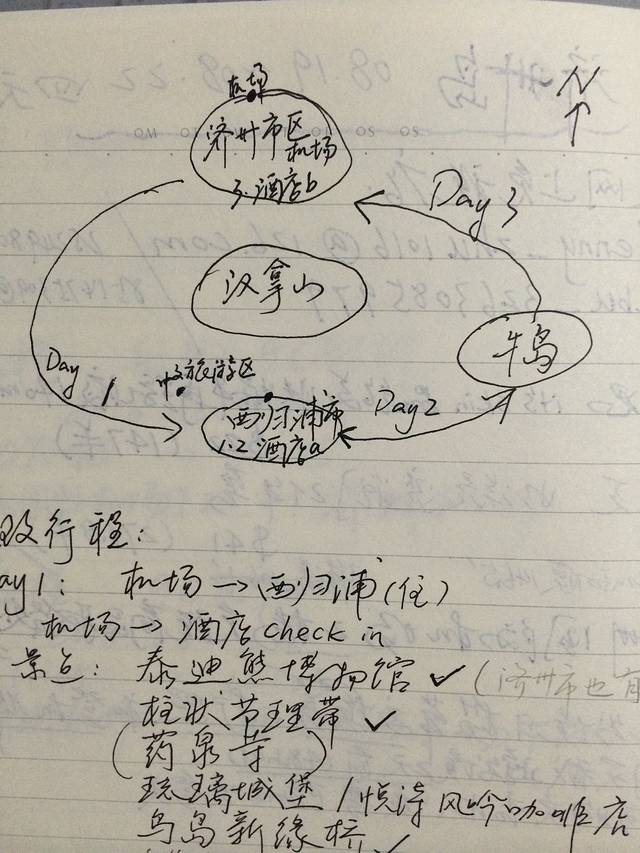 机场
N
济州市区
机场
3.酒店b
Day 3
汉拿山
牛岛
Day 1
旅游区
西归浦市
1.2酒店a
Day2
及行程:
ay1: 机场→西归浦(住)
机场→酒店check in
景点: 泰迪熊博物馆 ✓ (济州市也有
柱状节理带 ✓
(药泉寺)
琉璃城堡/悦诗风吟咖啡店
鸟岛新缘桥 ✓